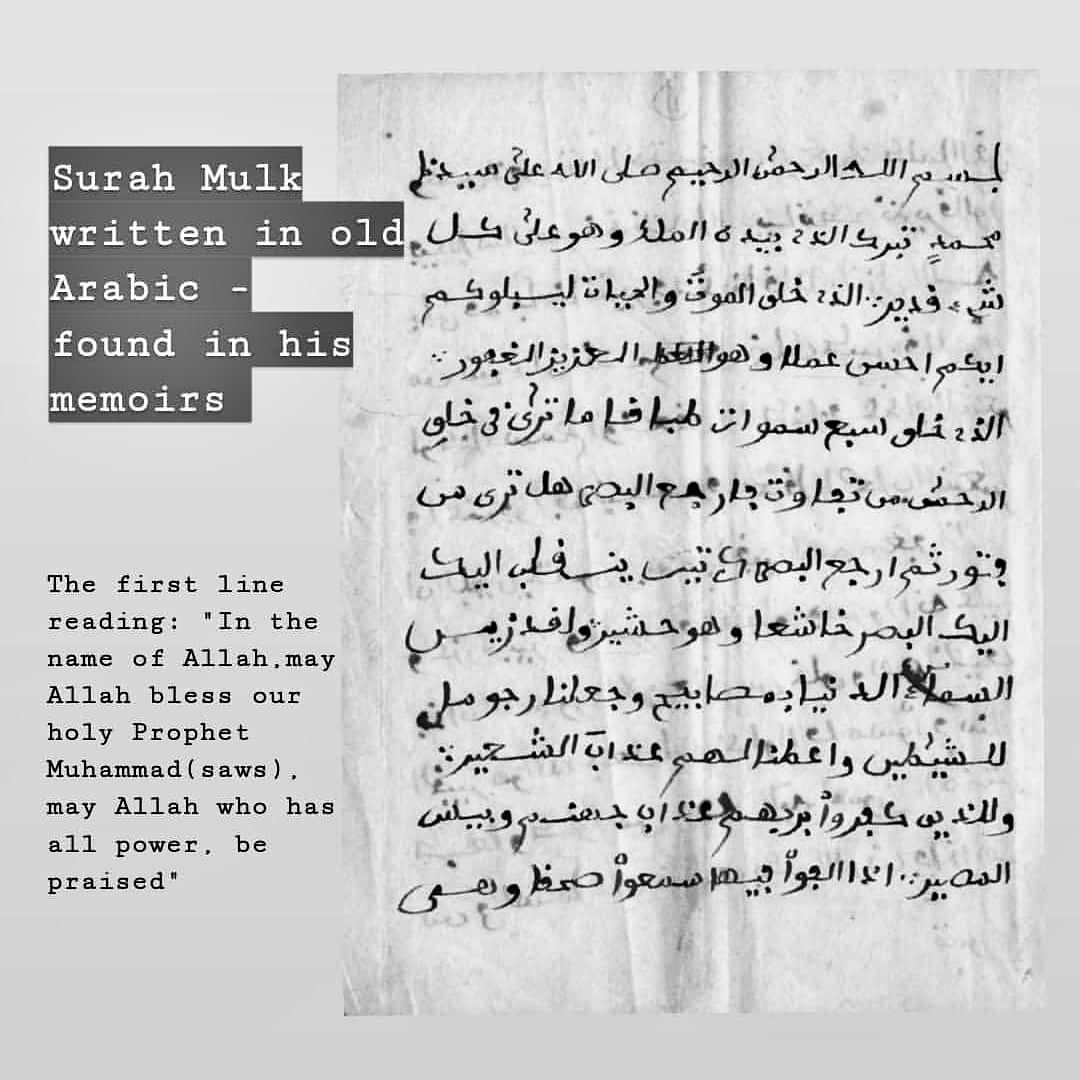 Surah Mulk
written in old
Arabic -
found in his
memoirs
The first line
reading: "In the
name of Allah,may
Allah bless our
holy Prophet
Muhammad(saws),
may Allah who has
all power, be
praised"
بسم الله الرحمن الرحيم صلى الله على
محمد تبرك الذي بيده الملك وهو على كل
شيء قدير الذي خلق الموت والحيات ليبلوكم
ايكم احسن عملا وهو العزيز الغفور
الذي خلق سبع سموات طباقا ما ترى في خلق
الرحمن من تفاوت فارجع البصر هل ترى من
فتور ثم ارجع البصر ينقلب اليك
اليك البصر خاشعا وهو حشير ولقد زين
السماء الدنيا بمصابيح وجعلنا رجوما
للشيطين واعطنا لهم عذاب الشعير
وللذين كفروا بربهم عذاب جهنم وبيس
المصير اذا القوا فيها سمعوا وهي